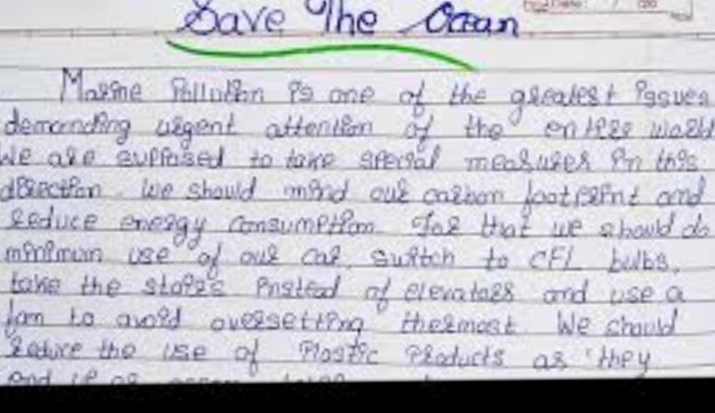 Save The Ocean
Marine Pollution is one of the greatest issues
demanding urgent attention of the entire world
We are suppased to take special measures in this
direction. We should mind our carbon footprint and
reduce energy consumption. For that we should do
minimum use of our car, switch to CFL bulbs,
take the stairs instead of elevators and use a
fan to avoid oversetting thermost. We should
reduce the use of Plastic Products as they
end up as ocean